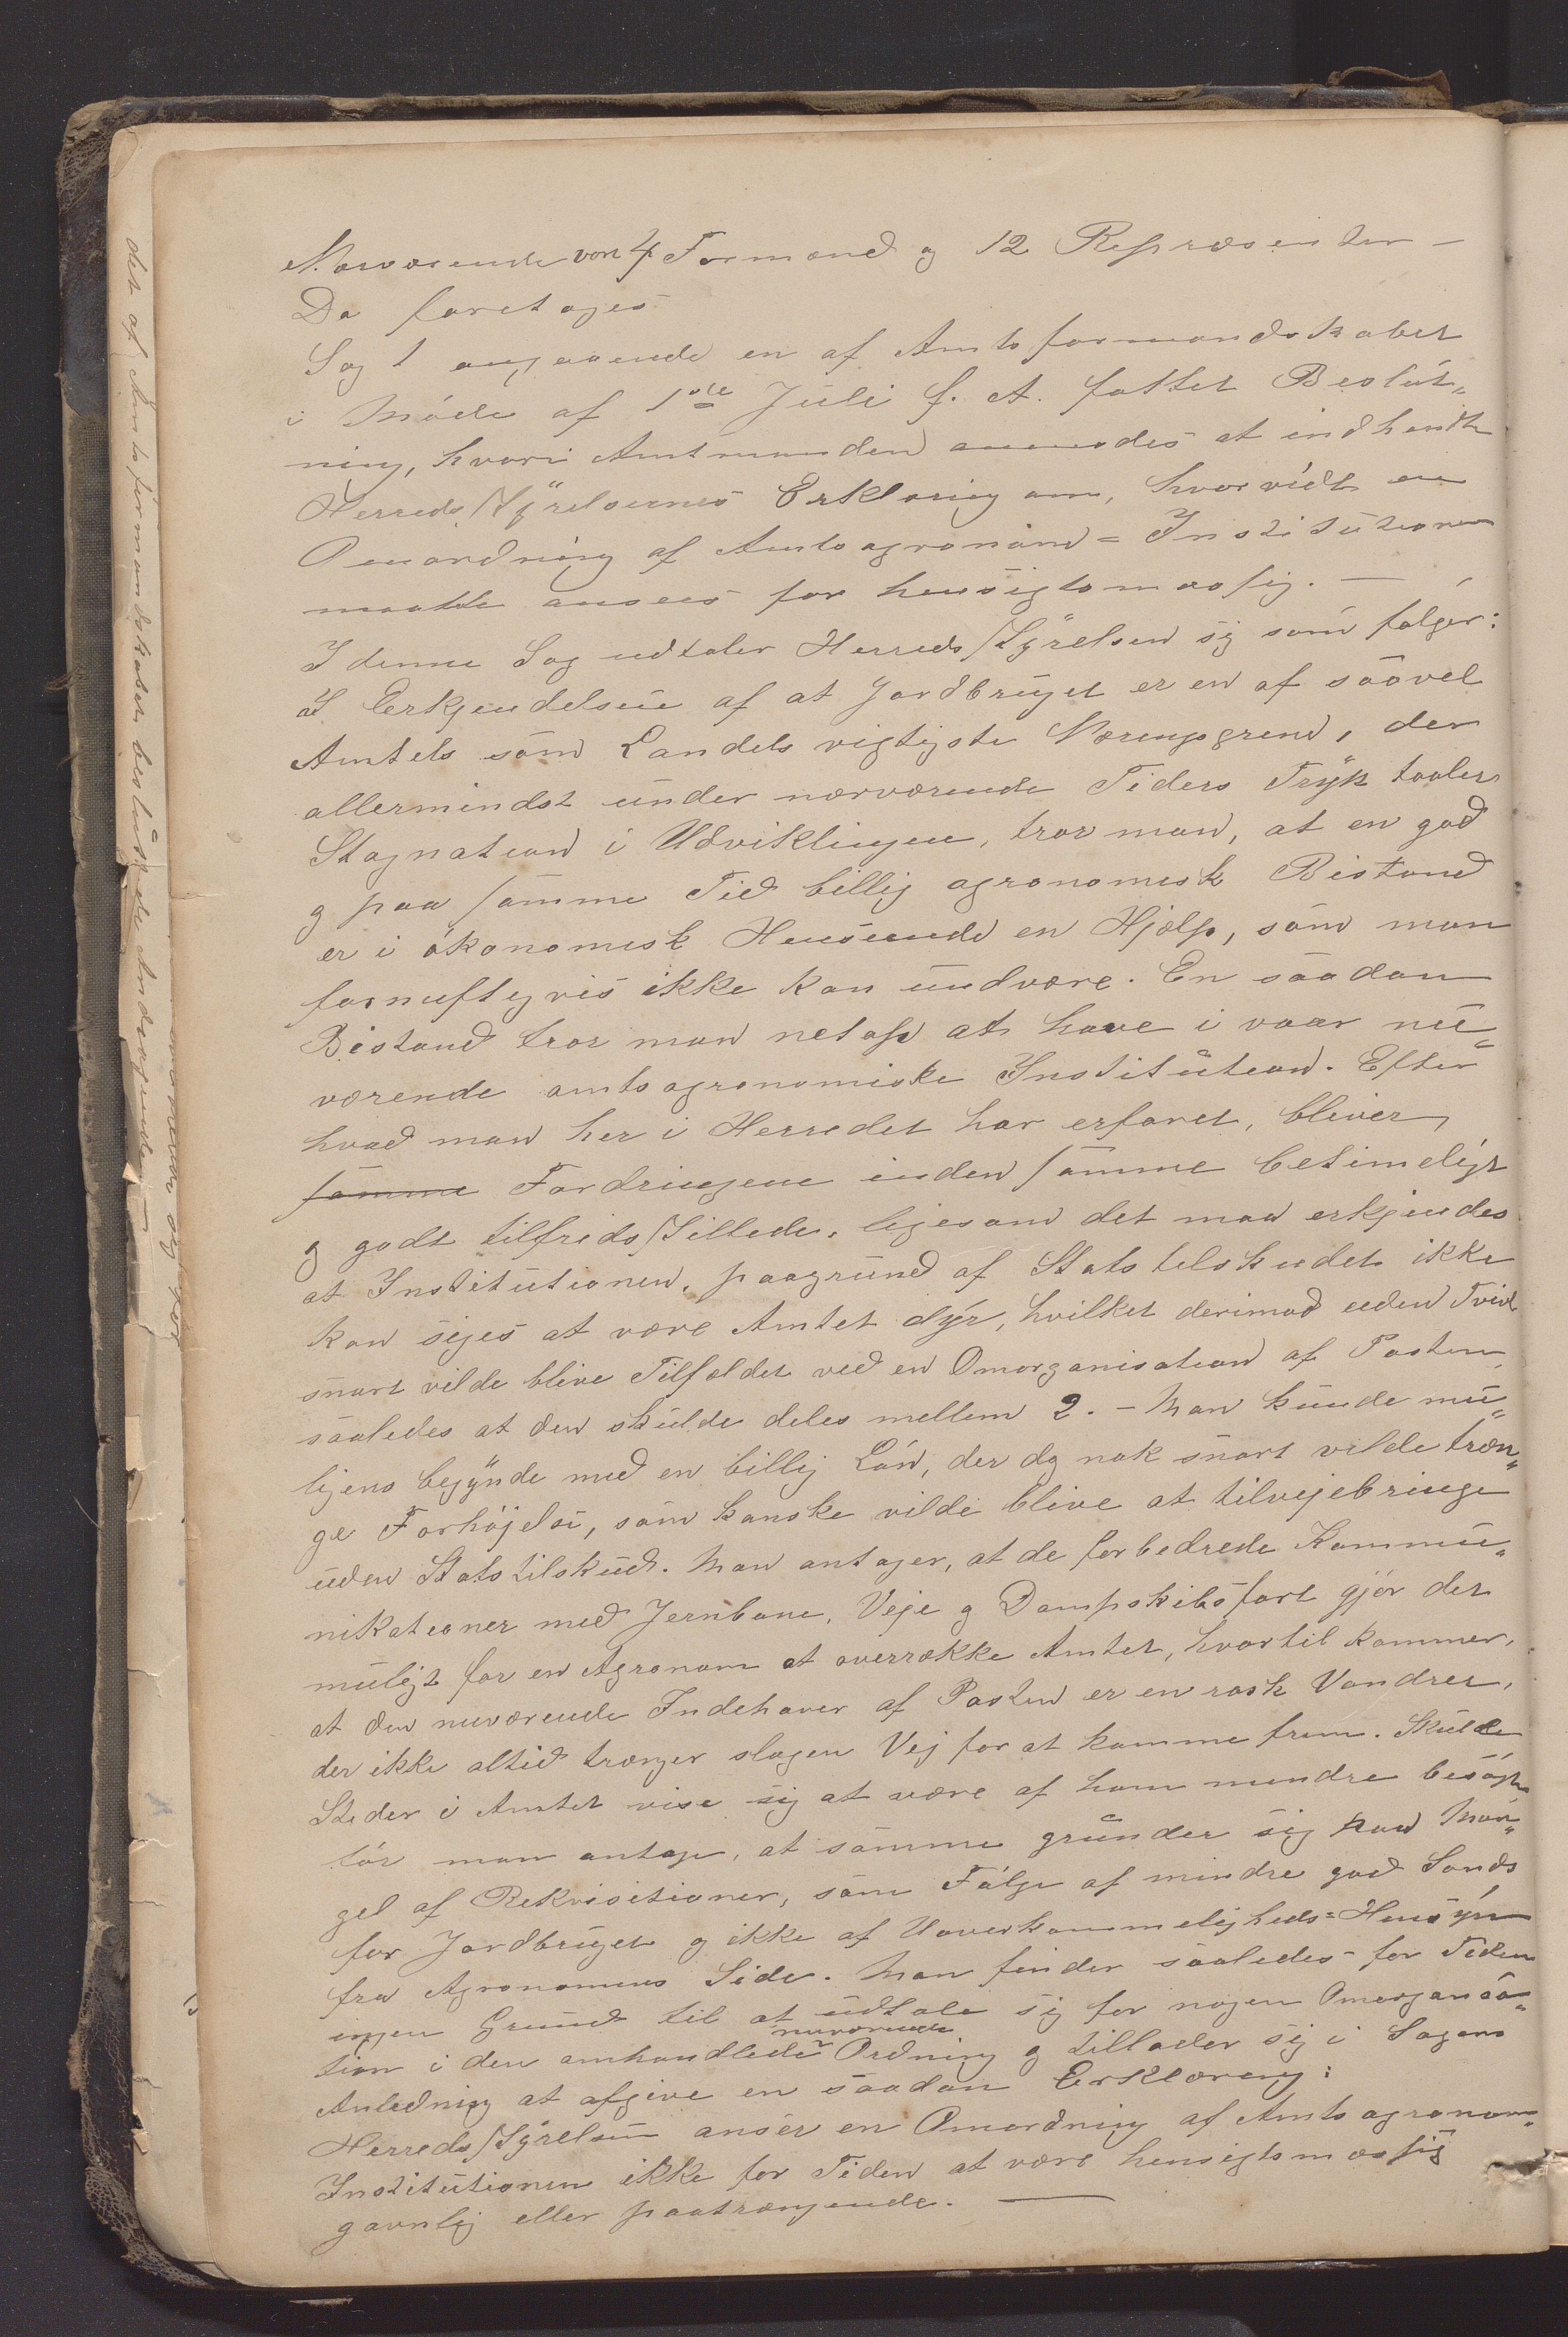 Nærværende vare 4 Formænd og 12 Repræsenter –
Da foretoges
Sag 1 angaaende en af Amtsformandskabet
i Møde af 1ste Juli f. A. fattet Beslut„
ning, hvori Amtmanden anmodes at indhente
Herredsstyrelsernes Erklæring om, hvorvidt en
Omordning af Amtsagronom= Institutionen
maatte ansees for hensigtsmæssig. —
I denne Sag udtaler Herredsstyrelsen sig som følger:
at Erkjendelsen af at Jordbruget er en af saavel
Amtets som Landets vigtigste Næringsgrene, der
allermindst under nærværende Tiders Tryk taaler
Stagnation i Udviklingen, tror man, at en god
og paa samme Tid billig agronomisk Bistand
er i økonomisk Henseende en Hjælp, som man
fornuftigvis ikke kan undvære. En saadan
Bistand tror man netop at have i vaar nu„
værende amtsagronomiske Institution. Efter
hvad man her i Herredet har erfaret, bliver
samme Fordringene inden samme betimeligt
og godt tilfredsstillede, ligesom det maa erkjendes
at Institutionen, paagrund af Statstilskudet ikke
kan siges at være Amtet dyr, hvilket derimod uden Tvivl
snart vilde blive Tilfældet ved en Omorganisation af Posten
saaledes at den skulde deles mellem 2. – Man kunde mu„
ligens begynde med en billig Løn, der dog nok snart vilde træn„
ge Forhøjelse, som kanske vilde blive at tilvejebringe
uden Statstilskud. Man antager, at de forbedrede Kommu„
nikationer med Jernbane, Veje og Dampskibsfart gjør det
muligt for en Agronom at overrække Amtet, hvortil kommer,
at den nuværende Indehaver af Posten er en rask Vandrer,
der ikke altid trænger slagen Vej for at komme frem. Skulde
Steder i Amtet vise sig at være af ham mindre besøgte
tør man antage, at samme grunder sig paa Man„
gel af Rekvisitioner, som Følge af mindre god Sands
for Jordbruget og ikke af Uoverkommeligheds=Hensyn
fra Agronomens Side. Man finder saaledes for Tiden
ingen Grund til at udtale sig for nogen Omorganisa„
nuværende
tion i den omhandlede Ordning og tillader sig i Sagens
Anledning at afgive en saadan Erklæring:
Herredsstyrelsen anser en Omordning af Amtsagronom„
Institutionen ikke for Tiden at være hensigtsmæssig
gavnlig eller paatrængende. —
det af Amtsformandskabet besluttede Andragende —